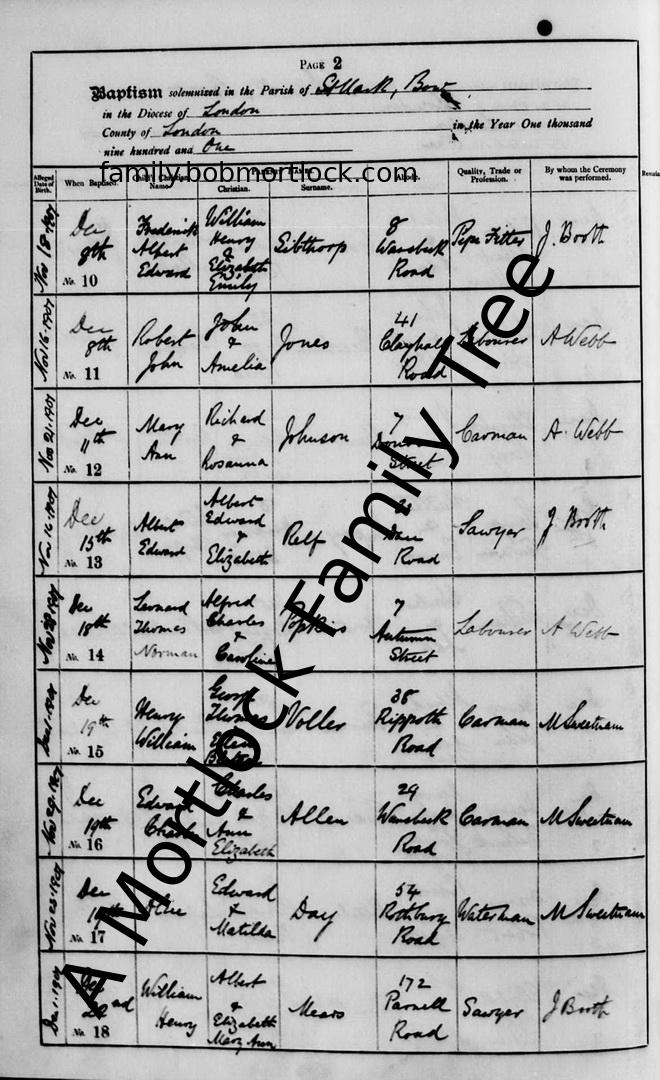 PAGE 2
Baptism solemnized in the Parish of St Mark, Bow
in the Diocese of London
County of London in the Year One thousand
nine hundred and One
familybobmortlock.com
Alleged Date of Birth.
When Baptised.
Name.
Christian.
Surname.
Quality, Trade or Profession.
By whom the Ceremony was performed.
Nov 18·1901
Dec 8th
No. 10
Frederick Albert Edward
William Henry & Elizabeth Emily
Sibthorp
8 Wansbeck Road
Pipe Fitter
J. Booth
Nov 16·1901
Dec 8th
No. 11
Robert John
John & Amelia
Jones
41 Clayhall Road
Labourer
A Webb
Nov 21·1901
Dec 11th
No. 12
Mary Ann
Richard & Rosanna
Johnson
7 Street
Carman
A. Webb
Nov 16·1901
Dec 15th
No. 13
Albert Edward
Albert Edward & Elizabeth
Relf
Road
Sawyer
J. Booth
1901
Dec 18th
No. 14
Leonard Thomas Norman
Alfred Charles & Caroline
Popkins
7 Autumn Street
Labourer
A Webb
1901
Dec 19th
No. 15
Henry William
George Thomas
Voller
38 Ripporth Road
Carman
M Sweetnam
Nov 29·1901
Dec 19th
No. 16
Edward Charles
Charles & Ann Elizabeth
Allen
29 Wansbeck Road
Carman
M Sweetnam
Nov 23·1901
Dec 19th
No. 17
Edward & Matilda
Day
54 Rothbury Road
Waterman
M Sweetnam
Dec 1·1901
22nd
No. 18
William Henry
Albert & Elizabeth Mary Ann
Mears
172 Parnell Road
Sawyer
J Booth
A Mortlock Family Tree